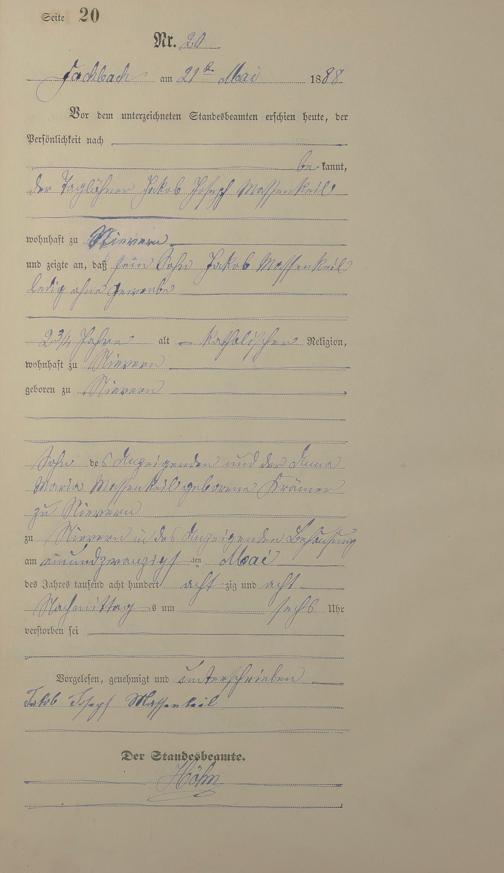 Seite 20
Nr. 20
Fachbach am 21ten Mai 1888
Vor dem unterzeichneten Standesbeamten erschien heute, der
Persönlichkeit nach
bekannt,
der Taglöhner Jakob Joseph Massenkeil
wohnhaft zu Nievern
und zeigte an, daß sein Sohn Jakob Massenkeil
ledig ohne Gewerbe
2 3/4 Jahre alt katholischer Religion,
wohnhaft zu Nievern
geboren zu Nievern
Sohn des Anzeigenden und der Anna
Maria Massenkeil geborene Krämer
zu Nievern
zu Nievern in des Anzeigenden Behausung
am einundzwanzigsten Mai
des Jahres tausend acht hundert achtzig und acht
Nachmittags um sechs Uhr
verstorben sei
Vorgelesen, genehmigt und unterschrieben
Jakob Joseph Massenkeil
Der Standesbeamte.
Höhn